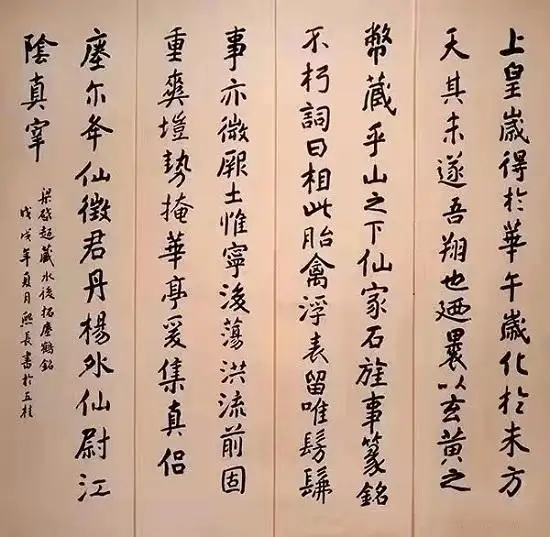 上皇歲得於華午歲化於未方
天其未遂吾翔也廼裹以玄黃之
幣藏乎山之下仙家石旌事篆銘
不朽詞曰相此胎禽浮表留唯髣髴
事亦微厥土惟寧後蕩洪流前固
重爽塏勢掩華亭爰集真侶
瘞尔夆仙徵君丹楊外仙尉江
陰真宰
梁啟超藏水後拓瘞鶴銘
戊戌年夏月熙長書於五桂